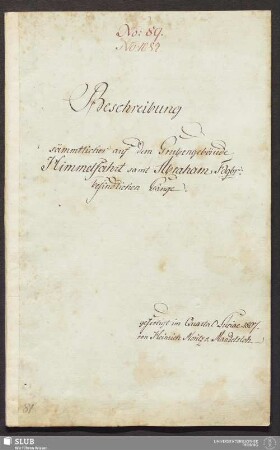 No: 89.
Beschreibung
sämmtlicher auf dem Grubengebäude
Himmelfahrt samt Abraham Fdgr:
befindlichen Gänge.
gefertigt im Quartal Luciae 1807.
von Heinrich Moritz v. Mandelsloh.
SLUB
Wir führen Wissen.